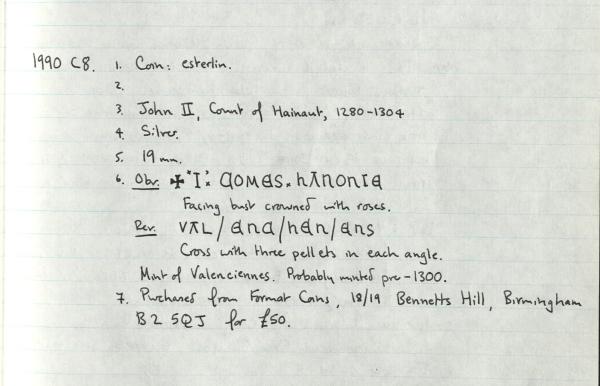 1990 C8. 1. Coin: esterlin.
2.
3. John II, Count of Hainaut, 1280-1304
4. Silver.
5. 19mm.
6. Obv. ✠ "I": COMES. hANONIE
Facing bust crowned with roses.
Rev. VAL/ENC/hEN/ENS
Cross with three pellets in each angle.
Mint of Valenciennes. Probably minted pre-1300.
7. Purchased from Format Coins, 18/19 Bennetts Hill, Birmingham
B2 5QJ for £50.